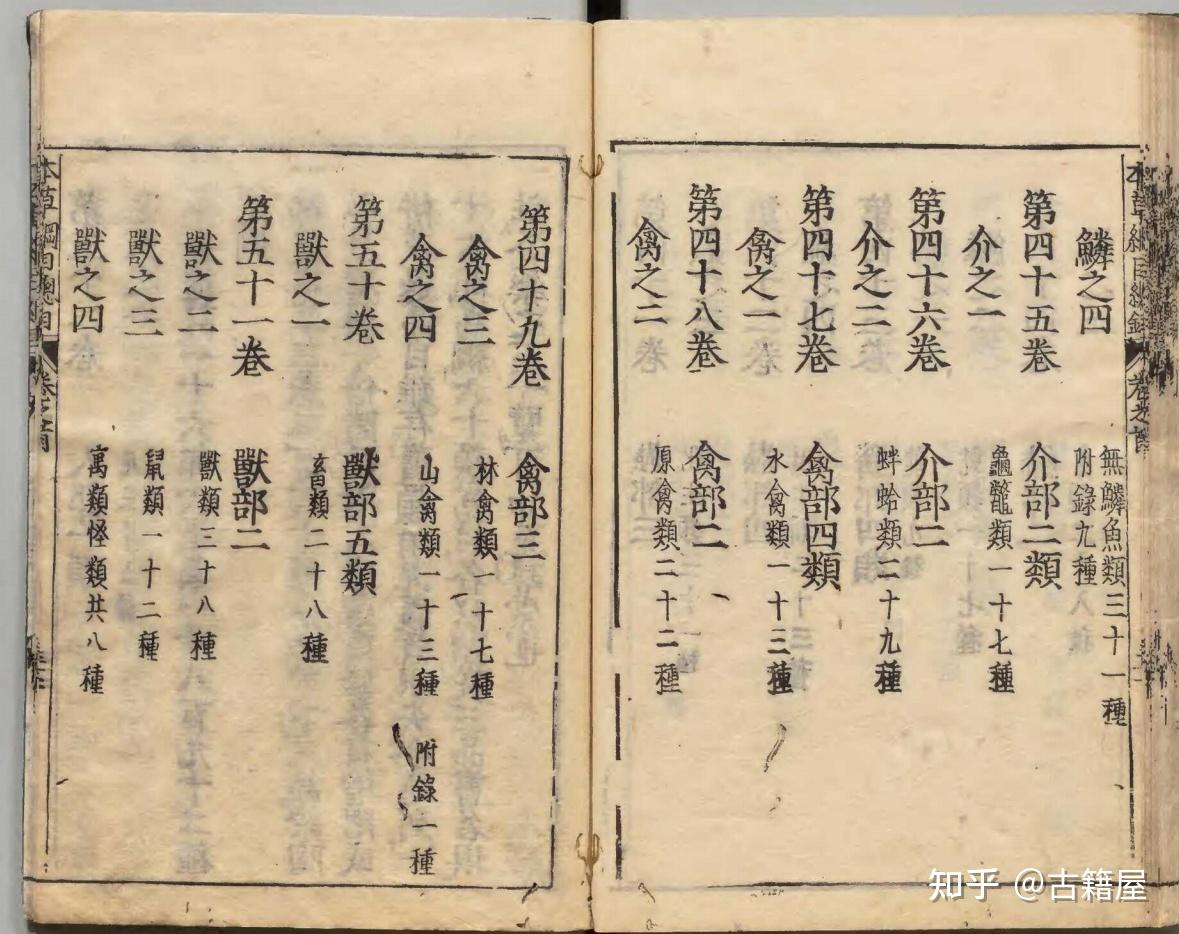 鱗之四
無鱗魚類三十一種
附錄九種
第四十五卷
介部二類
介之一
龜鼈類一十七種
第四十六卷
介部二
介之二
蚌蛤類二十九種
第四十七卷
禽部四類
禽之一
水禽類一十三種
第四十八卷
禽部二
禽之二
原禽類二十二種
第四十九卷
禽部三
禽之三
林禽類一十七種
禽之四
山禽類一十三種 附錄一種
第五十卷
獸部五類
獸之一
畜類二十八種
第五十一卷
獸部二
獸之二
獸類三十八種
獸之三
鼠類一十二種
獸之四
寓類怪類共八種
本草綱目總目 卷之首
知乎 @古籍屋